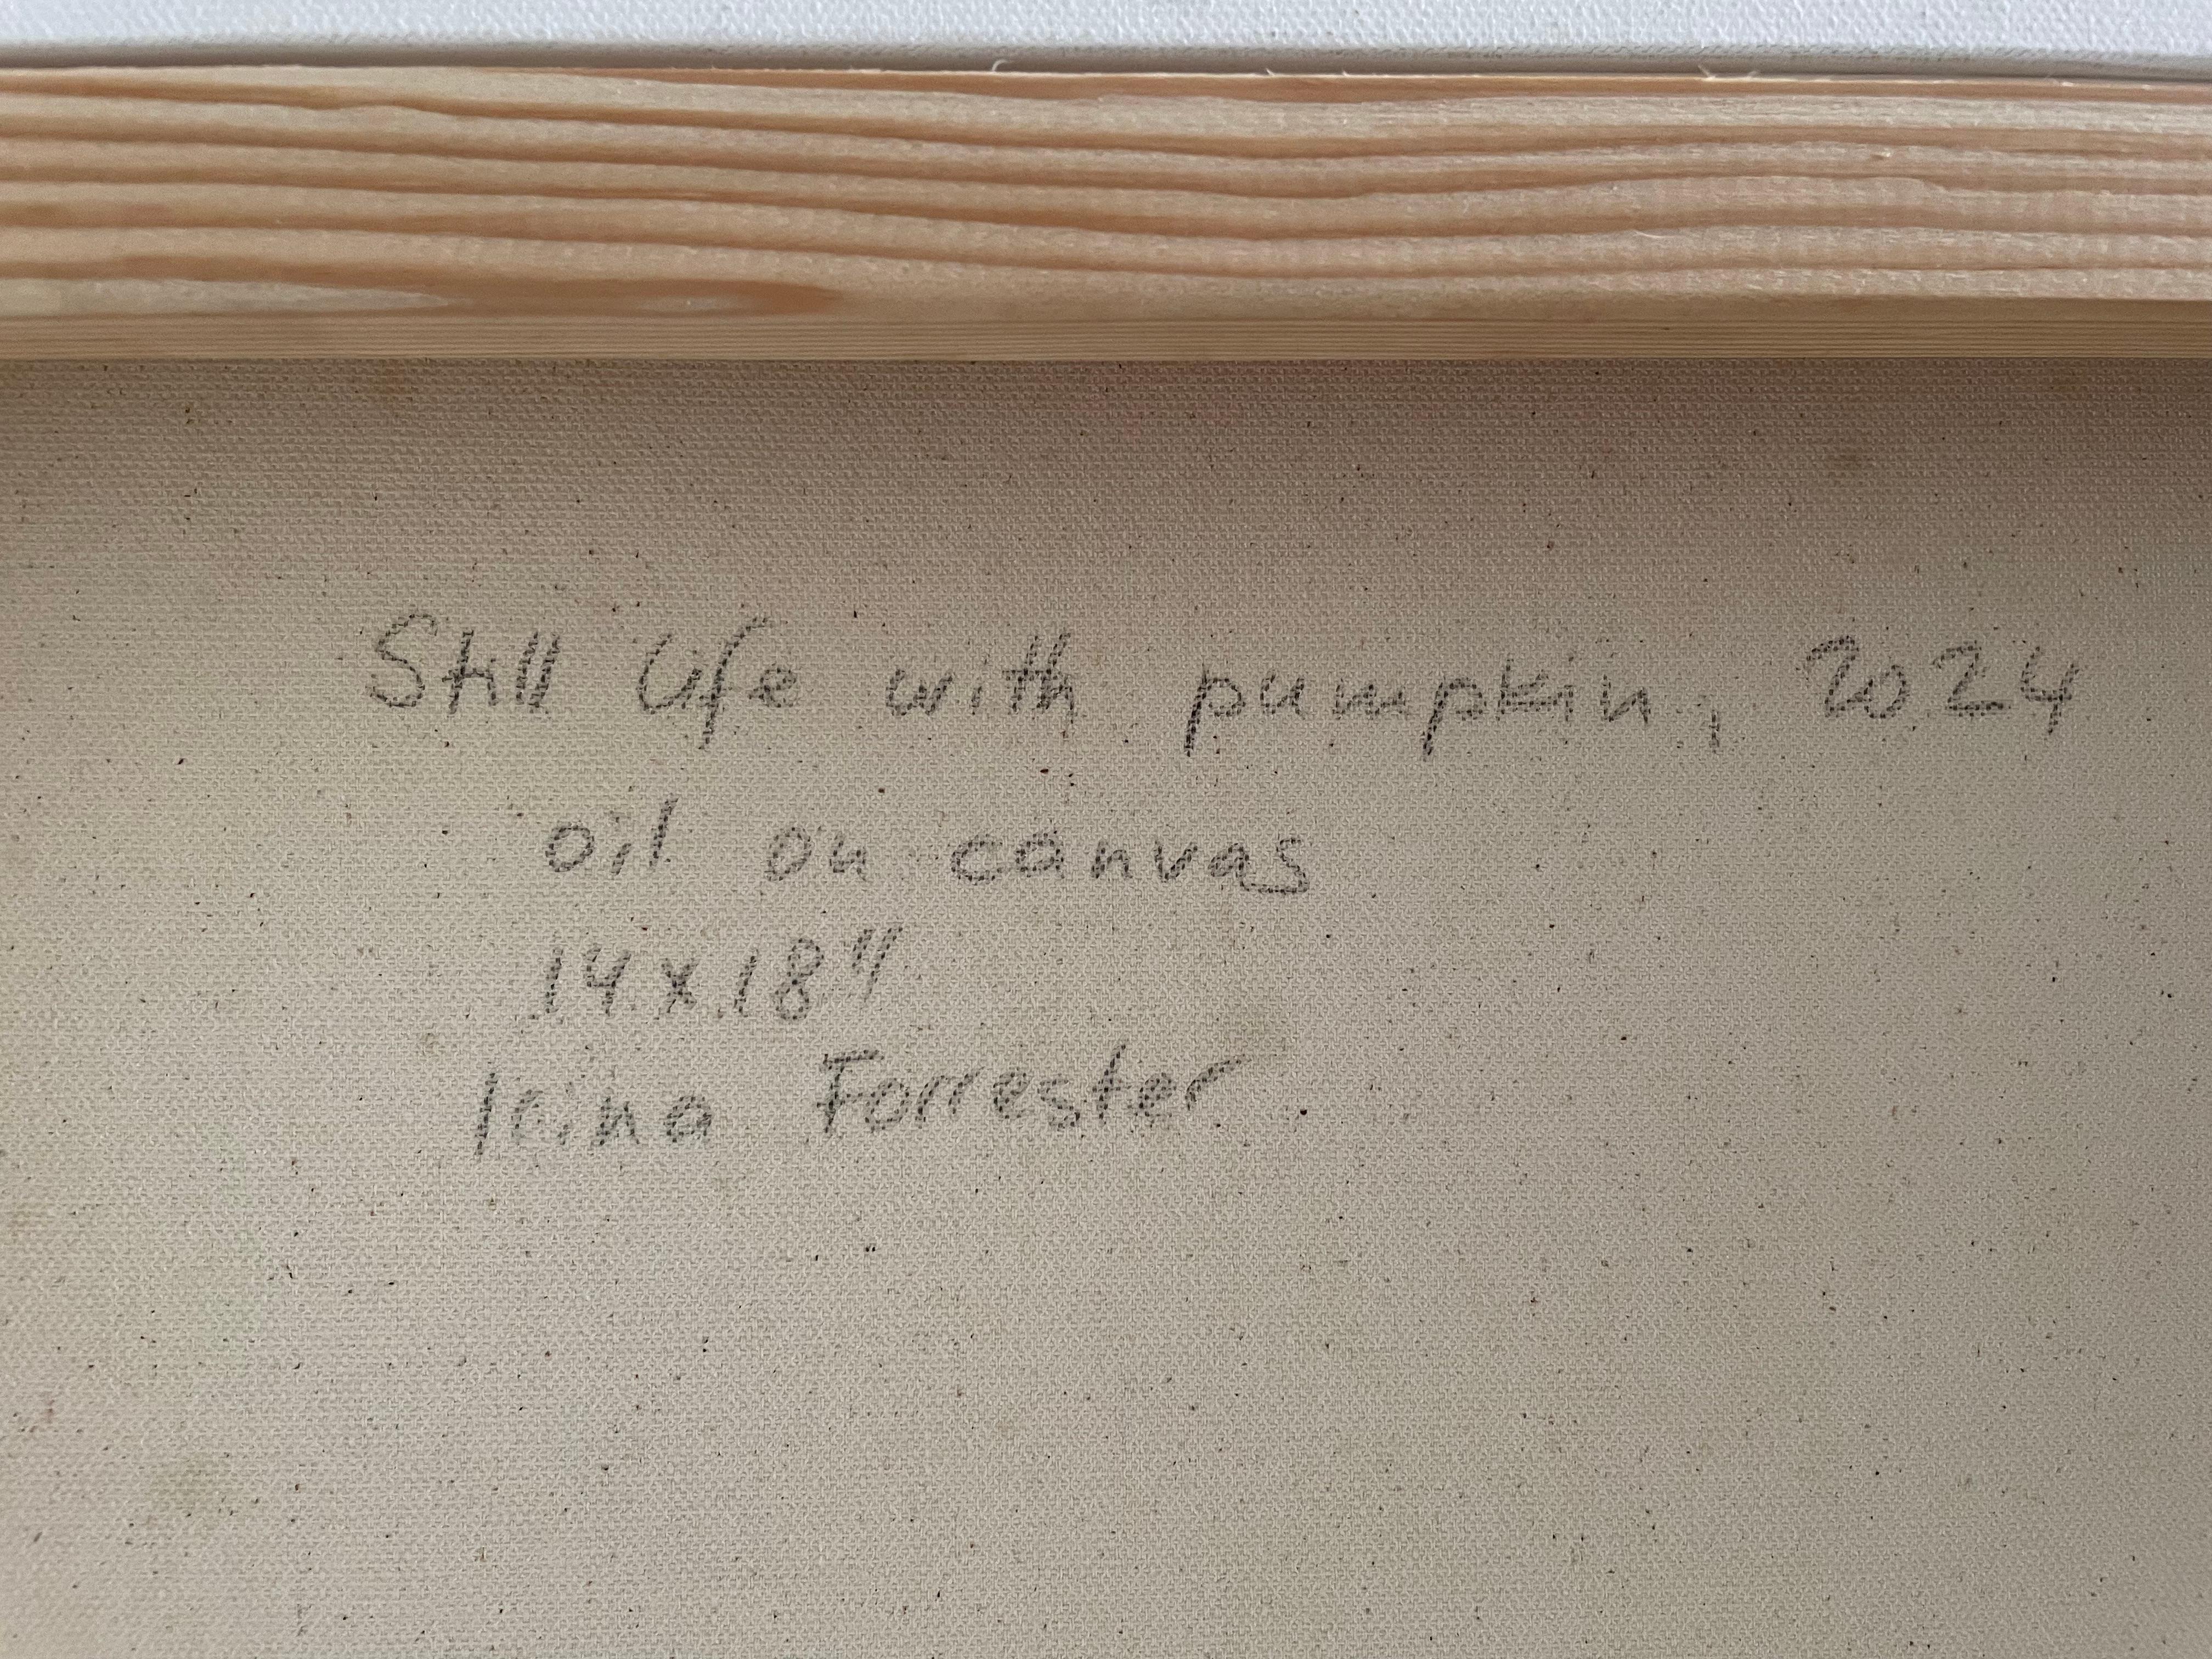 Still life with pumpkin, 2024
oil on canvas
14x18"
Irina Forrester